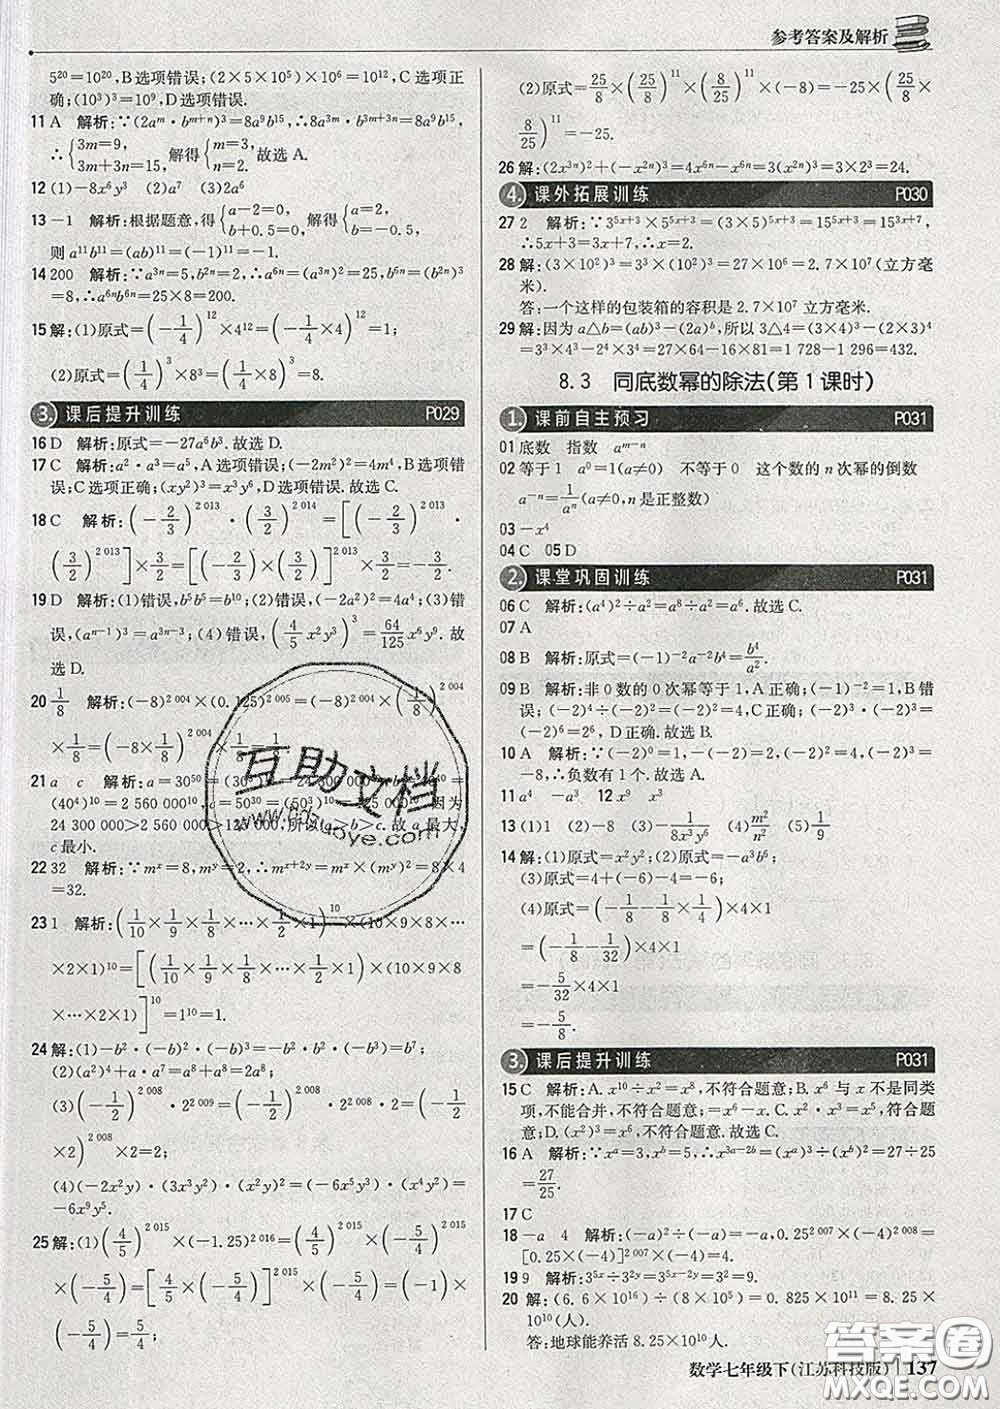 参考答案及解析
5²⁰=10²⁰,B选项错误;(2×5×10⁵)×10⁶=10¹²,C选项正
确;(10³)³=10⁹,D选项错误.
11 A 解析:∵(2aᵐ·bᵐ⁺ⁿ)³=8a⁹b¹⁵,∴8a³ᵐ·b³ᵐ⁺³ⁿ=8a⁹b¹⁵,
∴{3m=9, 3m+3n=15, 解得{m=3, n=2. 故选 A.
12 (1)-8x⁶y³ (2)a⁷ (3)2a⁶
13 -1 解析:根据题意,得{a-2=0, b+0.5=0, 解得{a=2, b=-0.5,
则 a¹¹b¹¹=(ab)¹¹=(-1)¹¹=-1.
14 200 解析:∵a³ⁿ=5,b²ⁿ=2,∴a⁶ⁿ=(a³ⁿ)²=25,b⁶ⁿ=(b²ⁿ)³
=8,∴a⁶ⁿb⁶ⁿ=25×8=200.
15 解:(1)原式=(-1/4)¹²×4¹²=(-1/4×4)¹²=1;
(2)原式=(1/4)³×8³=(1/4×8)³=8.
3. 课后提升训练 P029
16 D 解析:原式=-27a⁶b³.故选 D.
17 C 解析:a²·a³=a⁵,A选项错误;(-2m²)²=4m⁴,B选项错
误;C选项正确;(xy²)³=x³y⁶,D选项错误.故选 C.
18 C 解析:(-2/3)²⁰¹³·(3/2)²⁰¹⁴=[(-2/3)²⁰¹³·
(3/2)²⁰¹³]×3/2=[(-2/3)×3/2]²⁰¹³×3/2=-3/2.
19 D 解析:(1)错误,b⁵b⁵=b¹⁰;(2)错误,(-1/2)⁴=1/16;(3)错
误,(aⁿ⁻¹)³=a³ⁿ⁻³;(4)错误,(4/5x²y³)³=64/125x⁶y⁹.故
选 D.
20 1/8 解析:(-8)²⁰⁰⁴×(0.125)²⁰⁰⁵=(-8)²⁰⁰⁴×(1/8)²⁰⁰⁴
×1/8=(-8×1/8)²⁰⁰⁴×1/8=1/8.
21 a c 解析:a=30⁵⁰=(30⁵)¹⁰=(24 300 000)¹⁰,b=40⁴⁰=
(40⁴)¹⁰=(2 560 000)¹⁰,c=50³⁰=(50³)¹⁰=(125 000)¹⁰.因为
24 300 000>2 560 000>125 000,所以a>b>c.故 a 最大,
c 最小.
22 32 解析:∵mˣ=8,mʸ=2,∴mˣ⁺²ʸ=mˣ×(mʸ)²=8×4
=32.
23 1 解析:(1/10×1/9×1/8×…×1/2×1)¹⁰×(10×9×8×…
×2×1)¹⁰=[(1/10×1/9×1/8×…×1/2×1)×(10×9×8
×…×2×1)]¹⁰=1¹⁰=1.
24 解:(1)-b²·(-b)²·(-b)³=b²·b²·b³=b⁷;
(2)(a²)⁴+a·a⁷=a⁸+a⁸=2a⁸;
(3)(-1/2)²⁰⁰⁸·2²⁰⁰⁹=(-1/2)²⁰⁰⁸·2²⁰⁰⁸·2=(-1/2
×2)²⁰⁰⁸×2=2;
(4)(-2x²y)·(3x³y)·(x⁴y)=(-6x⁵y²)·(x⁴y)=
-6x⁹y³.
25 解:(1)(4/5)²⁰¹⁵×(-1.25)²⁰¹⁶=(4/5)²⁰¹⁵×(-5/4)²⁰¹⁵
×(-5/4)=[4/5×(-5/4)]²⁰¹⁵×(-5/4)=(-1)×
(-5/4)=5/4;
(2)原式=25/8×(25/8)¹¹×(8/25)¹¹×(-8)=-25×(25/8×
8/25)¹¹=-25.
26 解:(2x³ⁿ)²+(-x²ⁿ)³=4x⁶ⁿ-x⁶ⁿ=3(x²ⁿ)³=3×2³=24.
4. 课外拓展训练 P030
27 2 解析:∵3⁵ˣ⁺³×5⁵ˣ⁺³=(3×5)⁵ˣ⁺³=15⁵ˣ⁺³=15³ˣ⁺⁷,
∴5x+3=3x+7,∴x=2.
28 解:(3×10²)³=3³×(10²)³=27×10⁶=2.7×10⁷(立方毫
米).
答:一个这样的包装箱的容积是 2.7×10⁷ 立方毫米.
29 解:因为 a△b=(ab)³-(2a)ᵇ,所以 3△4=(3×4)³-(2×3)⁴
=3³×4³-2⁴×3⁴=27×64-16×81=1 728-1 296=432.
8.3 同底数幂的除法(第1课时)
1. 课前自主预习 P031
01 底数 指数 aᵐ⁻ⁿ
02 等于1 a⁰=1(a≠0) 不等于0 这个数的 n 次幂的倒数
a⁻ⁿ=1/aⁿ(a≠0,n是正整数)
03 -x⁴
04 C 05 D
2. 课堂巩固训练 P031
06 C 解析:(a⁴)²÷a²=a⁸÷a²=a⁶.故选 C.
07 A
08 B 解析:原式=(-1)⁻²a⁻²b⁴=b⁴/a².
09 B 解析:非0数的0次幂等于1,A正确;(-1)⁻²=1,B错
误;(-2)⁴÷(-2)²=(-2)²=4,C正确;(-2)³÷(-2)⁻³=
(-2)⁶=26,D正确.故选 B.
10 A 解析:∵(-2)⁰=1,(-2)²=4,(-2)⁻²=1/4,(-2)³=
-8,∴负数有1个.故选 A.
11 a⁴ -a³ 12 x⁹ x³
13 (1)1 (2)-8 (3)-1/8x³y⁶ (4)m²/n² (5)1/9
14 解:(1)原式=x²y²;(2)原式=-a³b⁶;
(3)原式=4+(-6)-4=-6;
(4)原式=(-1/8-1/8×1/4)×4×1
=(-1/8-1/32)×4×1
=-5/32×4×1
=-5/8.
3. 课后提升训练 P031
15 C 解析:A. x¹⁰÷x²=x⁸,不符合题意;B. x⁶ 与 x 不是同类
项,不能合并,不符合题意;=x⁶-x,不符合题意;C. x²·x³=x⁵,符合
题意;D.(x²)³=x⁶,不符合题意.故选 C.
16 A 解析:∵xᵃ=3,xᵇ=5,∴x³ᵃ⁻²ᵇ=(xᵃ)³÷(xᵇ)²=27÷25
=27/25.
17 C
18 -a 4 解析:(-a)²÷(-a)=-a;0.25²⁰⁰⁷×(-4)²⁰⁰⁸=
[0.25×(-4)]²⁰⁰⁷×(-4)=4.
19 9 解析:3⁵ˣ÷3²ʸ=3⁵ˣ⁻²ʸ=3²=9.
20 解:(6.6×10¹⁶)÷(8×10⁵)=0.825×10¹¹=8.25×
10¹⁰(人).
答:地球能养活 8.25×10¹⁰人.
数学七年级下(江苏科技版) 137
互助文档
答案圈
MXQE.COM